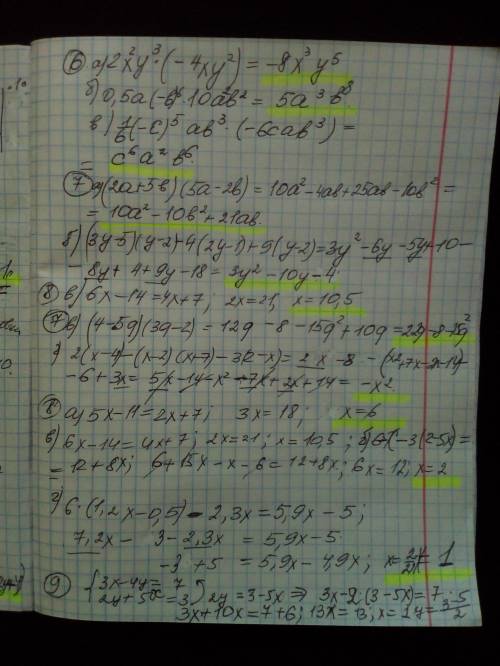 6 а) 2x²y³·(-4xy²) = -8x³y⁵
б) 0,5a(-b)⁶·10a²b² = 5a³b⁸
в) 1/6(-c)⁵ab³·(-6cab³) =
= c⁶a²b⁶.
7 а) (2a+5b)(5a-2b) = 10a²-4ab+25ab-10b² =
= 10a²-10b²+21ab.
б) (3y-5)(y-2)-4(2y-1)+9(y-2)=3y²-6y-5y+10-
-8y+4+9y-18=3y²-10y-4
8 в) 6x-14=4x+7; 2x=21, x=10,5
7 в) (4-5q)(3q-2)=12q-8-15q²+10q=22q-8-15q²
г) 2(x-4)-(x-2)(x+7)-3(2-x)=2x-8-(x²+7x-2x-14)-
-6+3x=5x-14-x²-7x+2x+14=-x²
8 а) 5x-11=2x+7; 3x=18; x=6
в) 6x-14=4x+7; 2x=21; x=10,5; б) -3(2-5x)=
=12+8x; 6+15x-x-6=12+8x; 6x=12; x=2
г) 6·(1,2x-0,5)-2,3x=5,9x-5;
7,2x-3-2,3x=5,9x-5
-3+5=5,9x-4,9x; 1
9 {3x-4y=7
2y+5x=3; 2y=3-5x ⇒ 3x-2·(3-5x)=7;
3x+10x=7+6; 13x=13; x=1 y=(3-5)/2